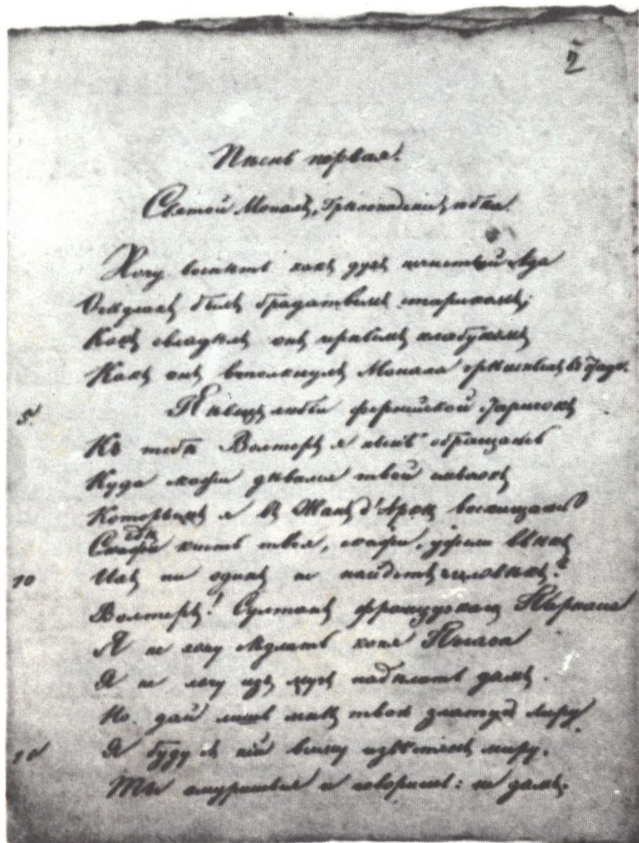 2
Пѣснь первая!
Святой Монахъ, Грѣхопаденіе, юбка.
Хочу воспѣть какъ духъ нечистый Ада
Осѣдланъ былъ брадатымъ старикомъ;
Какъ овладѣлъ онъ чернымъ клобукомъ
Какъ онъ втолкнулъ Монаха грѣшныхъ въ стадо.
5. Пѣвецъ любви фернейской старичокъ
Къ тебѣ Волтеръ я нынѣ обращаюсь
Куда скажи дѣвался твой смычокъ
Которымъ я въ Жанъ д'Аркѣ восхищаюсь
гдѣ кисть твоя, скажи, ужели ввѣкъ
10 Ихъ ни одинъ не найдетъ человѣкъ?
Волтеръ! Султанъ французскаго Парнаса
Я не хочу сѣдлать коня Пегаса
Я не хочу изъ музъ надѣлать дамъ.
Но дай лишь мнѣ твою златую лиру
15 Я буду съ ней всему извѣстенъ миру.
Ты хмуришься и говоришь: не дамъ.